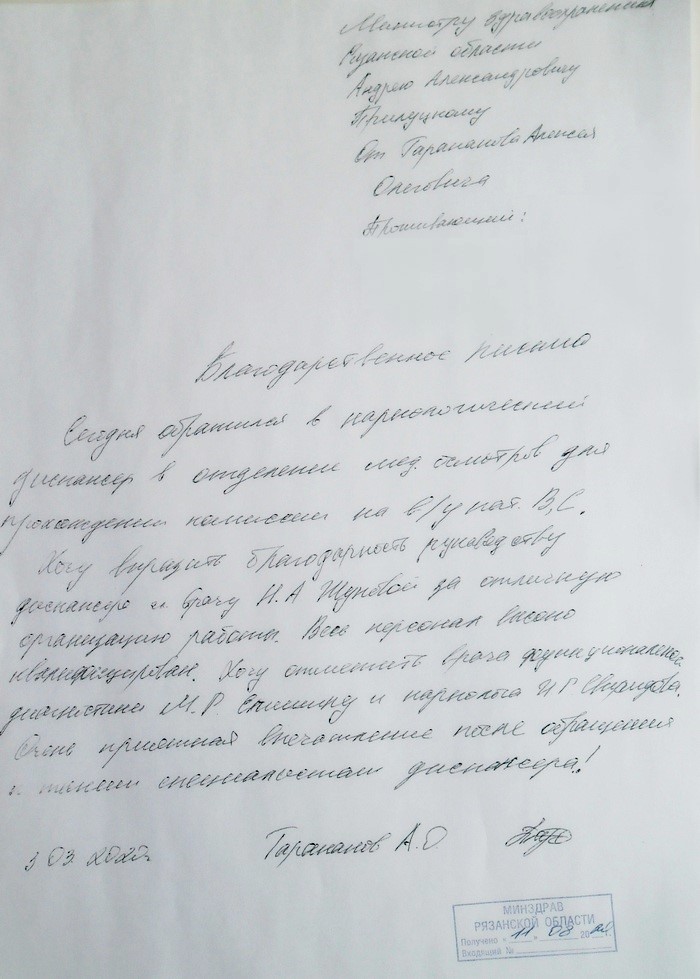 Министру здравоохранения
Рязанской области
Андрею Александровичу
Прилуцкому
От Тараканова Алексея
Олеговича
Проживающий:
Благодарственное письмо
Сегодня обратился в наркологический
диспансер в отделение мед. осмотров для
прохождении комиссии на в/у кат. В, С.
Хочу выразить благодарность руководству
диспансера гл. врачу Н.А Жуковой за отличную
организацию работы. Весь персонал высоко
квалифицирован. Хочу отметить врача функциональной
диагностики М. Р. и нарколога
Очень приятная впечатление после обращения
к таким специалистам диспансера!
3 03 2020г Тараканов А.О
МИНЗДРАВ
РЯЗАНСКОЙ ОБЛАСТИ
Получено « 11 » 03 20 г.
Входящий №